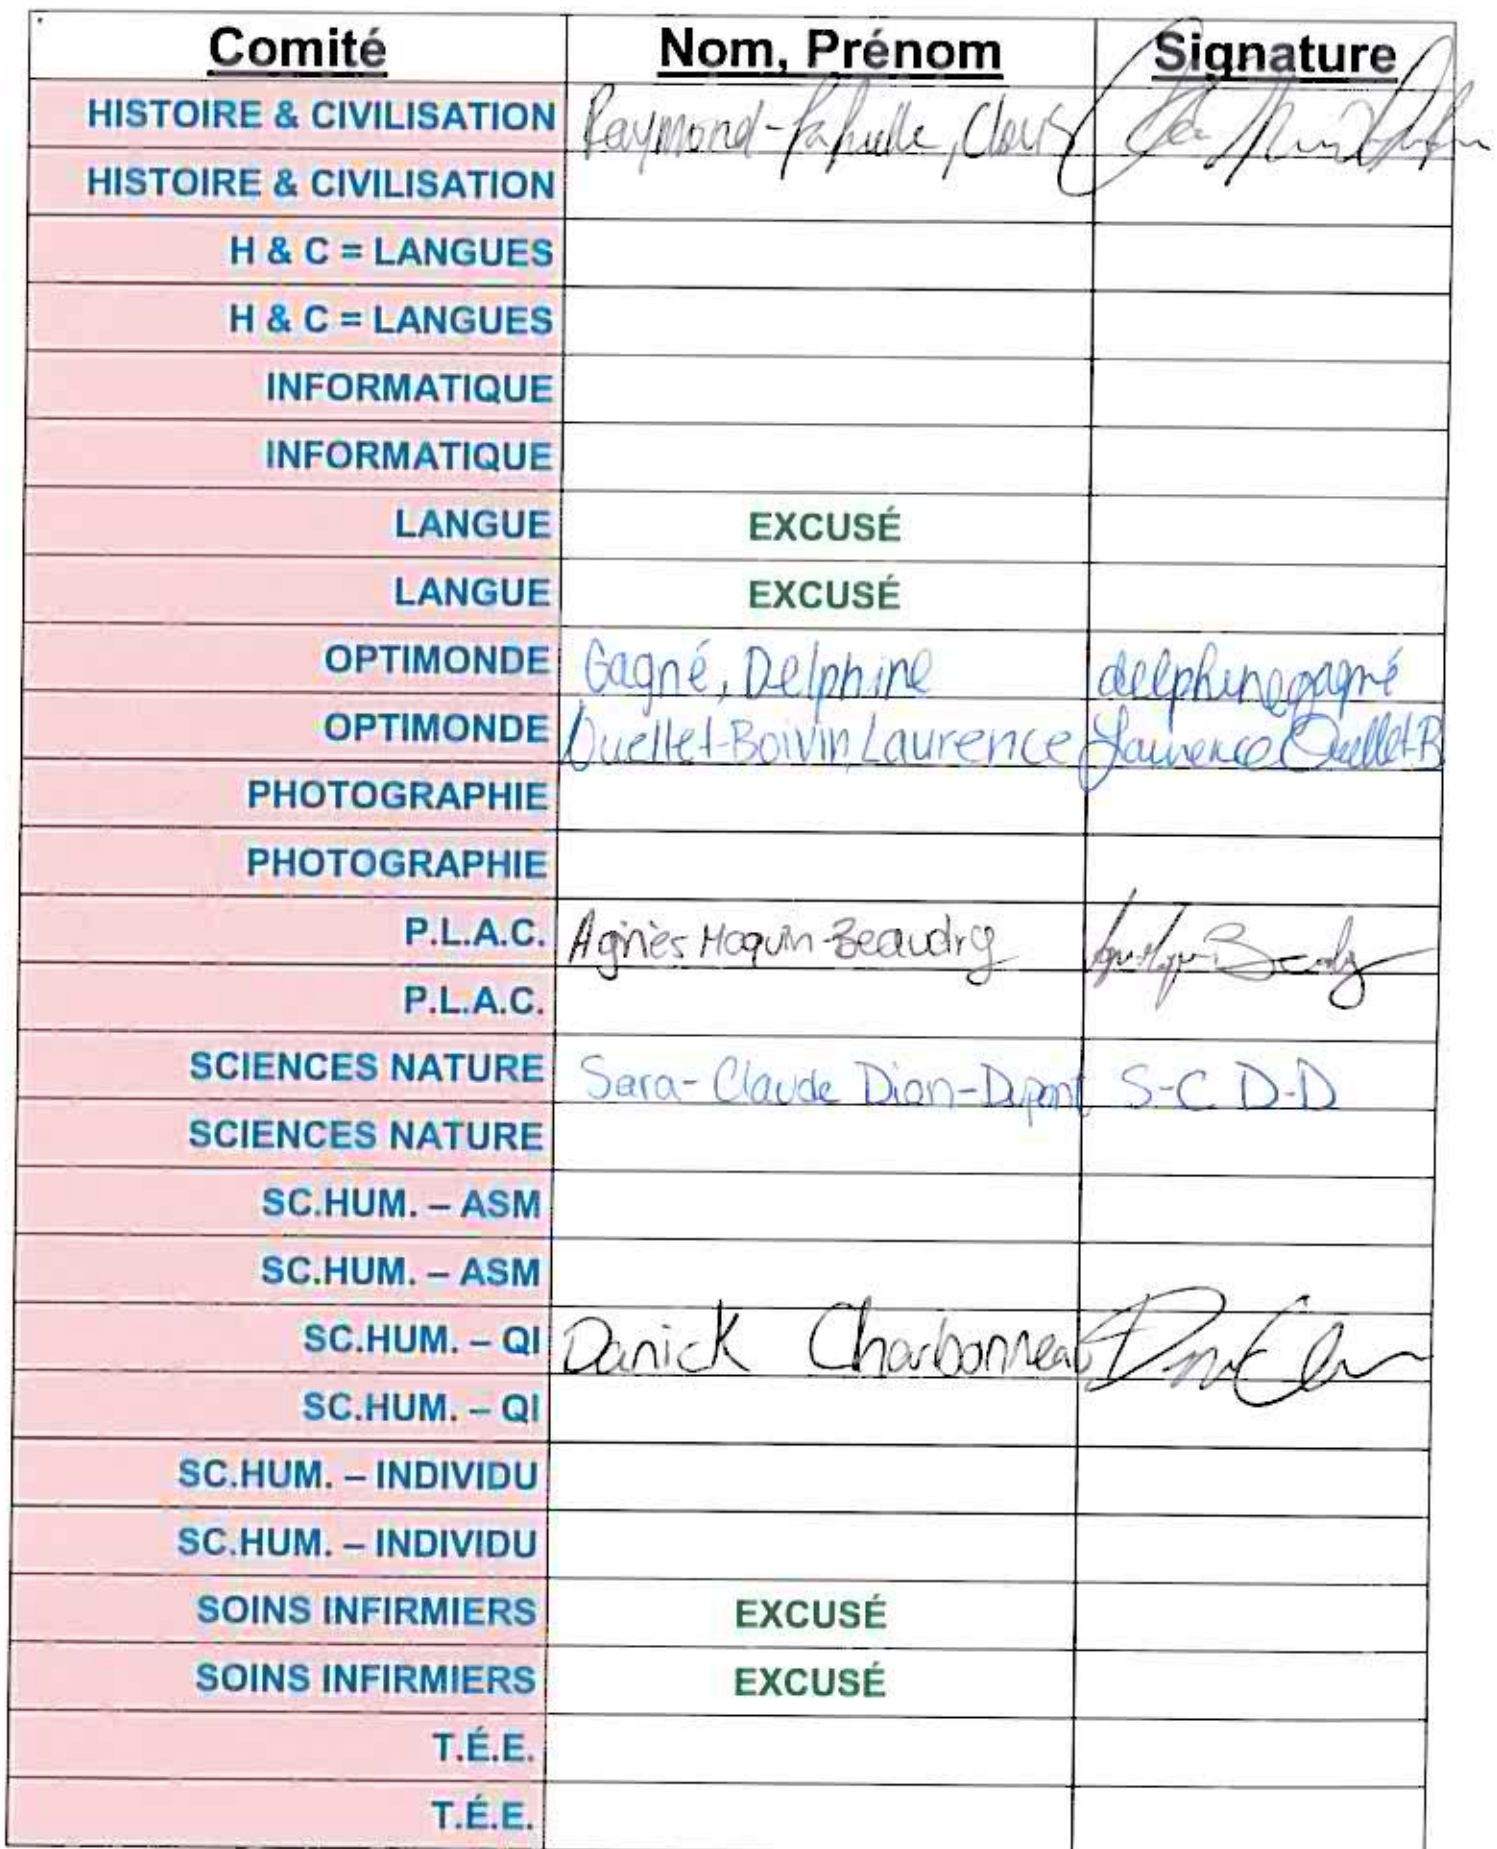 Comité Nom, Prénom Signature
HISTOIRE & CIVILISATION Raymond-
HISTOIRE & CIVILISATION
H & C = LANGUES
H & C = LANGUES
INFORMATIQUE
INFORMATIQUE
LANGUE EXCUSÉ
LANGUE EXCUSÉ
OPTIMONDE Gagné, Delphine delphine gagné
OPTIMONDE Ouellet-Boivin, Laurence Laurence Ouellet-B
PHOTOGRAPHIE
PHOTOGRAPHIE
P.L.A.C. Agnès Moquin-Beaudry
P.L.A.C.
SCIENCES NATURE Sara-Claude Dion-Dupont S-C D-D
SCIENCES NATURE
SC.HUM. – ASM
SC.HUM. – ASM
SC.HUM. – QI Danick Charbonneau
SC.HUM. – QI
SC.HUM. – INDIVIDU
SC.HUM. – INDIVIDU
SOINS INFIRMIERS EXCUSÉ
SOINS INFIRMIERS EXCUSÉ
T.É.E.
T.É.E.